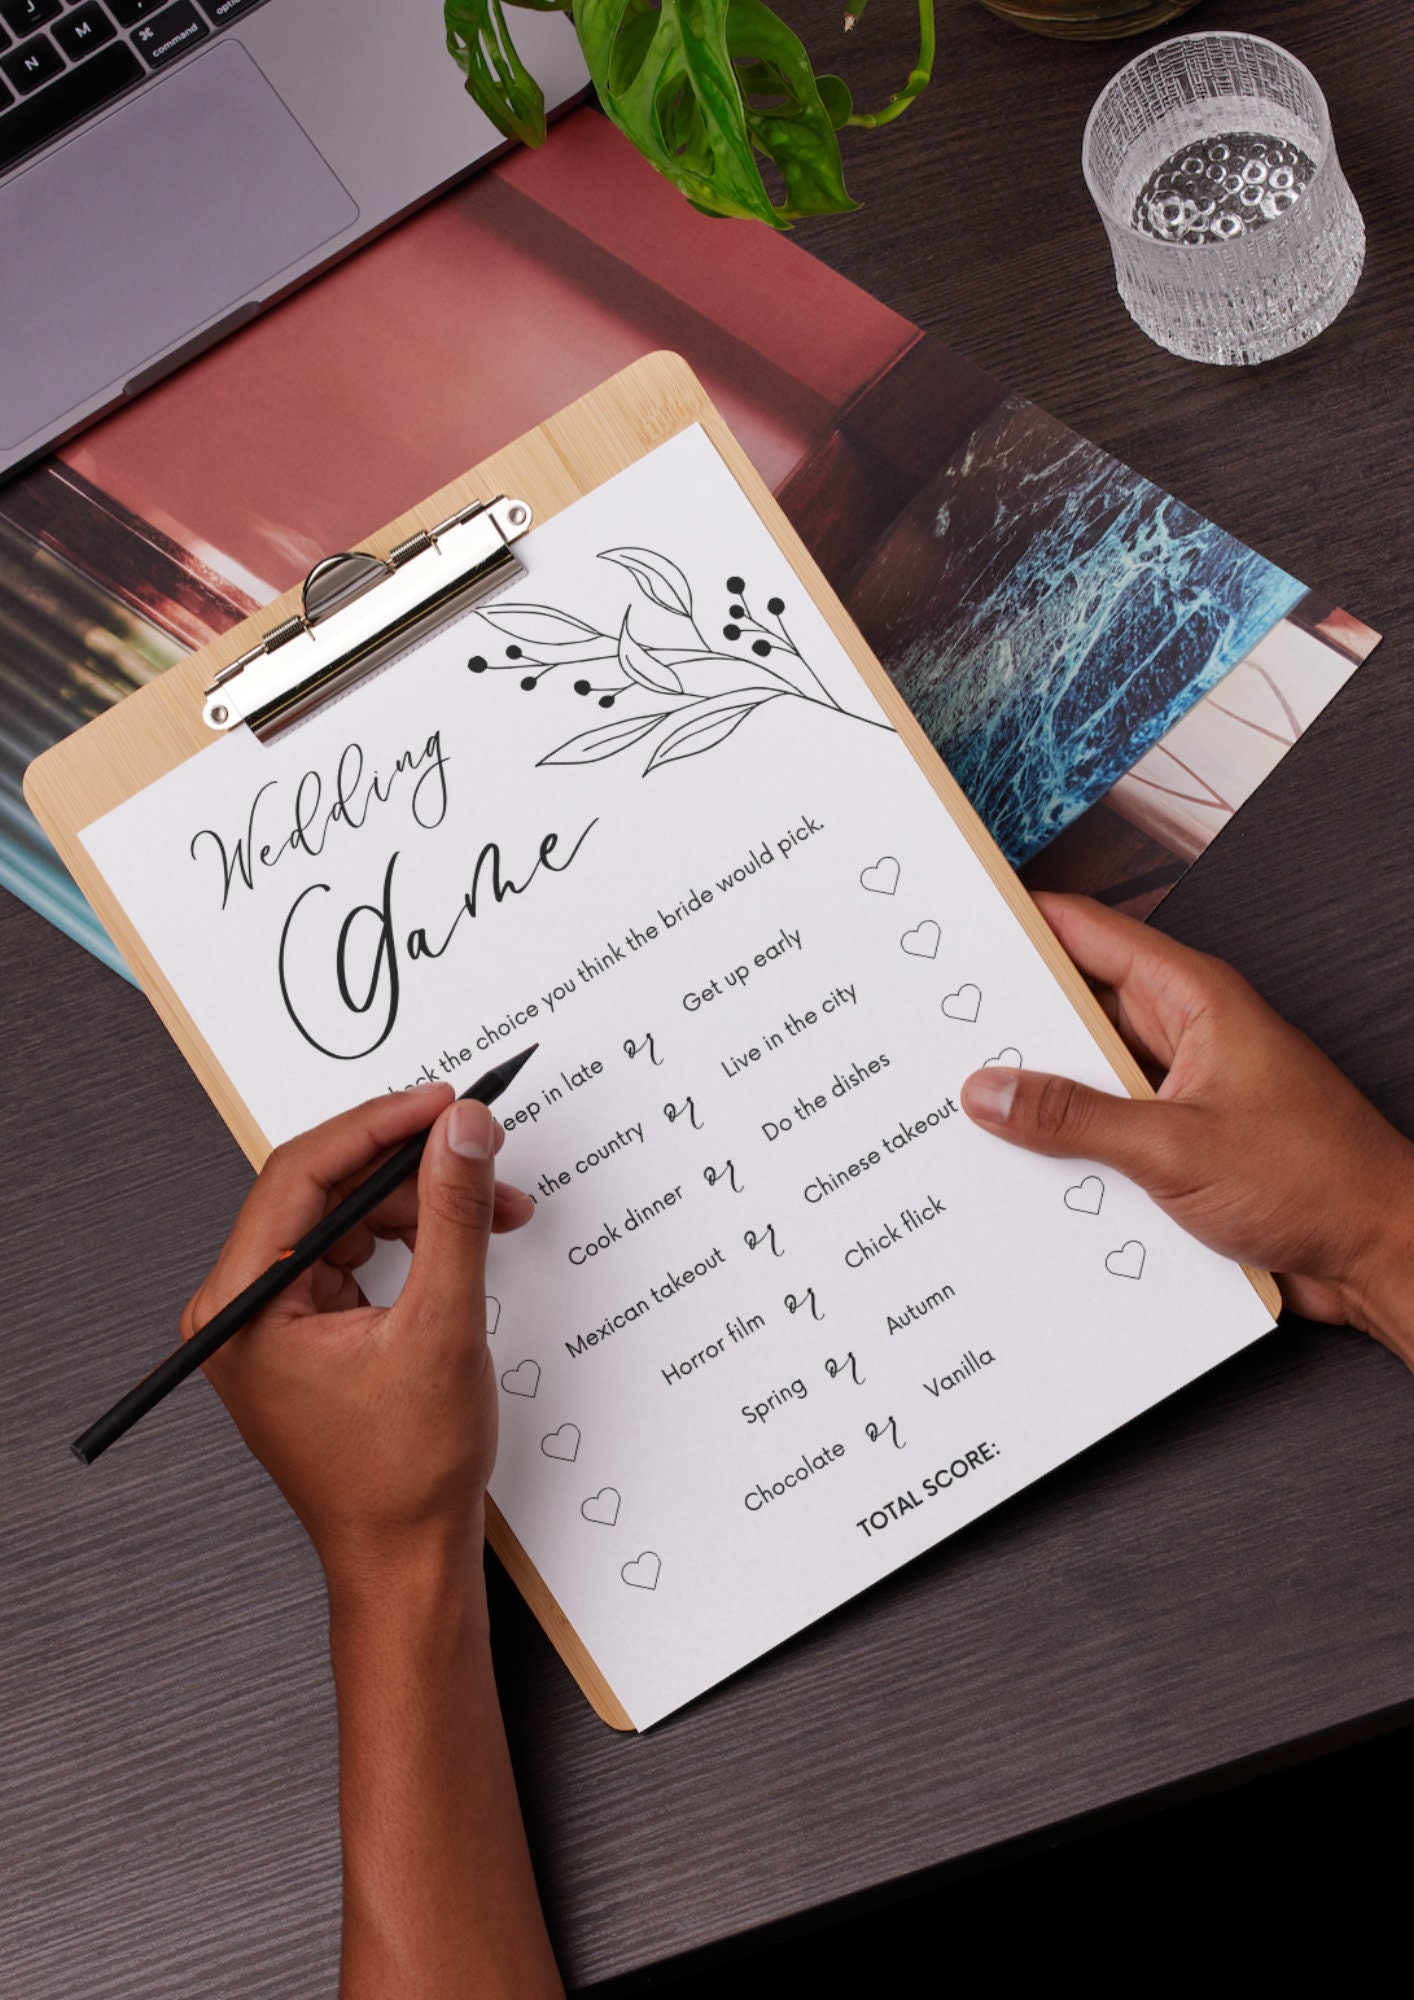 J
N
M
⌘
command
Wedding
Game
the choice you think the bride would pick.
in late or Get up early
the country or Live in the city
Cook dinner or Do the dishes
Mexican takeout or Chinese takeout
Horror film or Chick flick
Spring or Autumn
Chocolate or Vanilla
TOTAL SCORE: